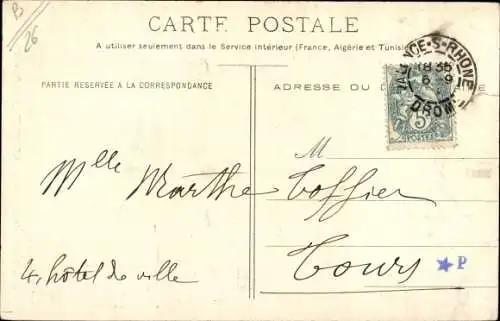 B
26
CARTE POSTALE
A utiliser seulement dans le Service intérieur (France, Algérie et Tunisie
PARTIE RÉSERVÉE A LA CORRESPONDANCE
ADRESSE DU D
VALENCE-S-RHONE
18 35
6 9
DROME
5
M
Mlle Marthe Toffier
4, hôtel de ville
Tours
P